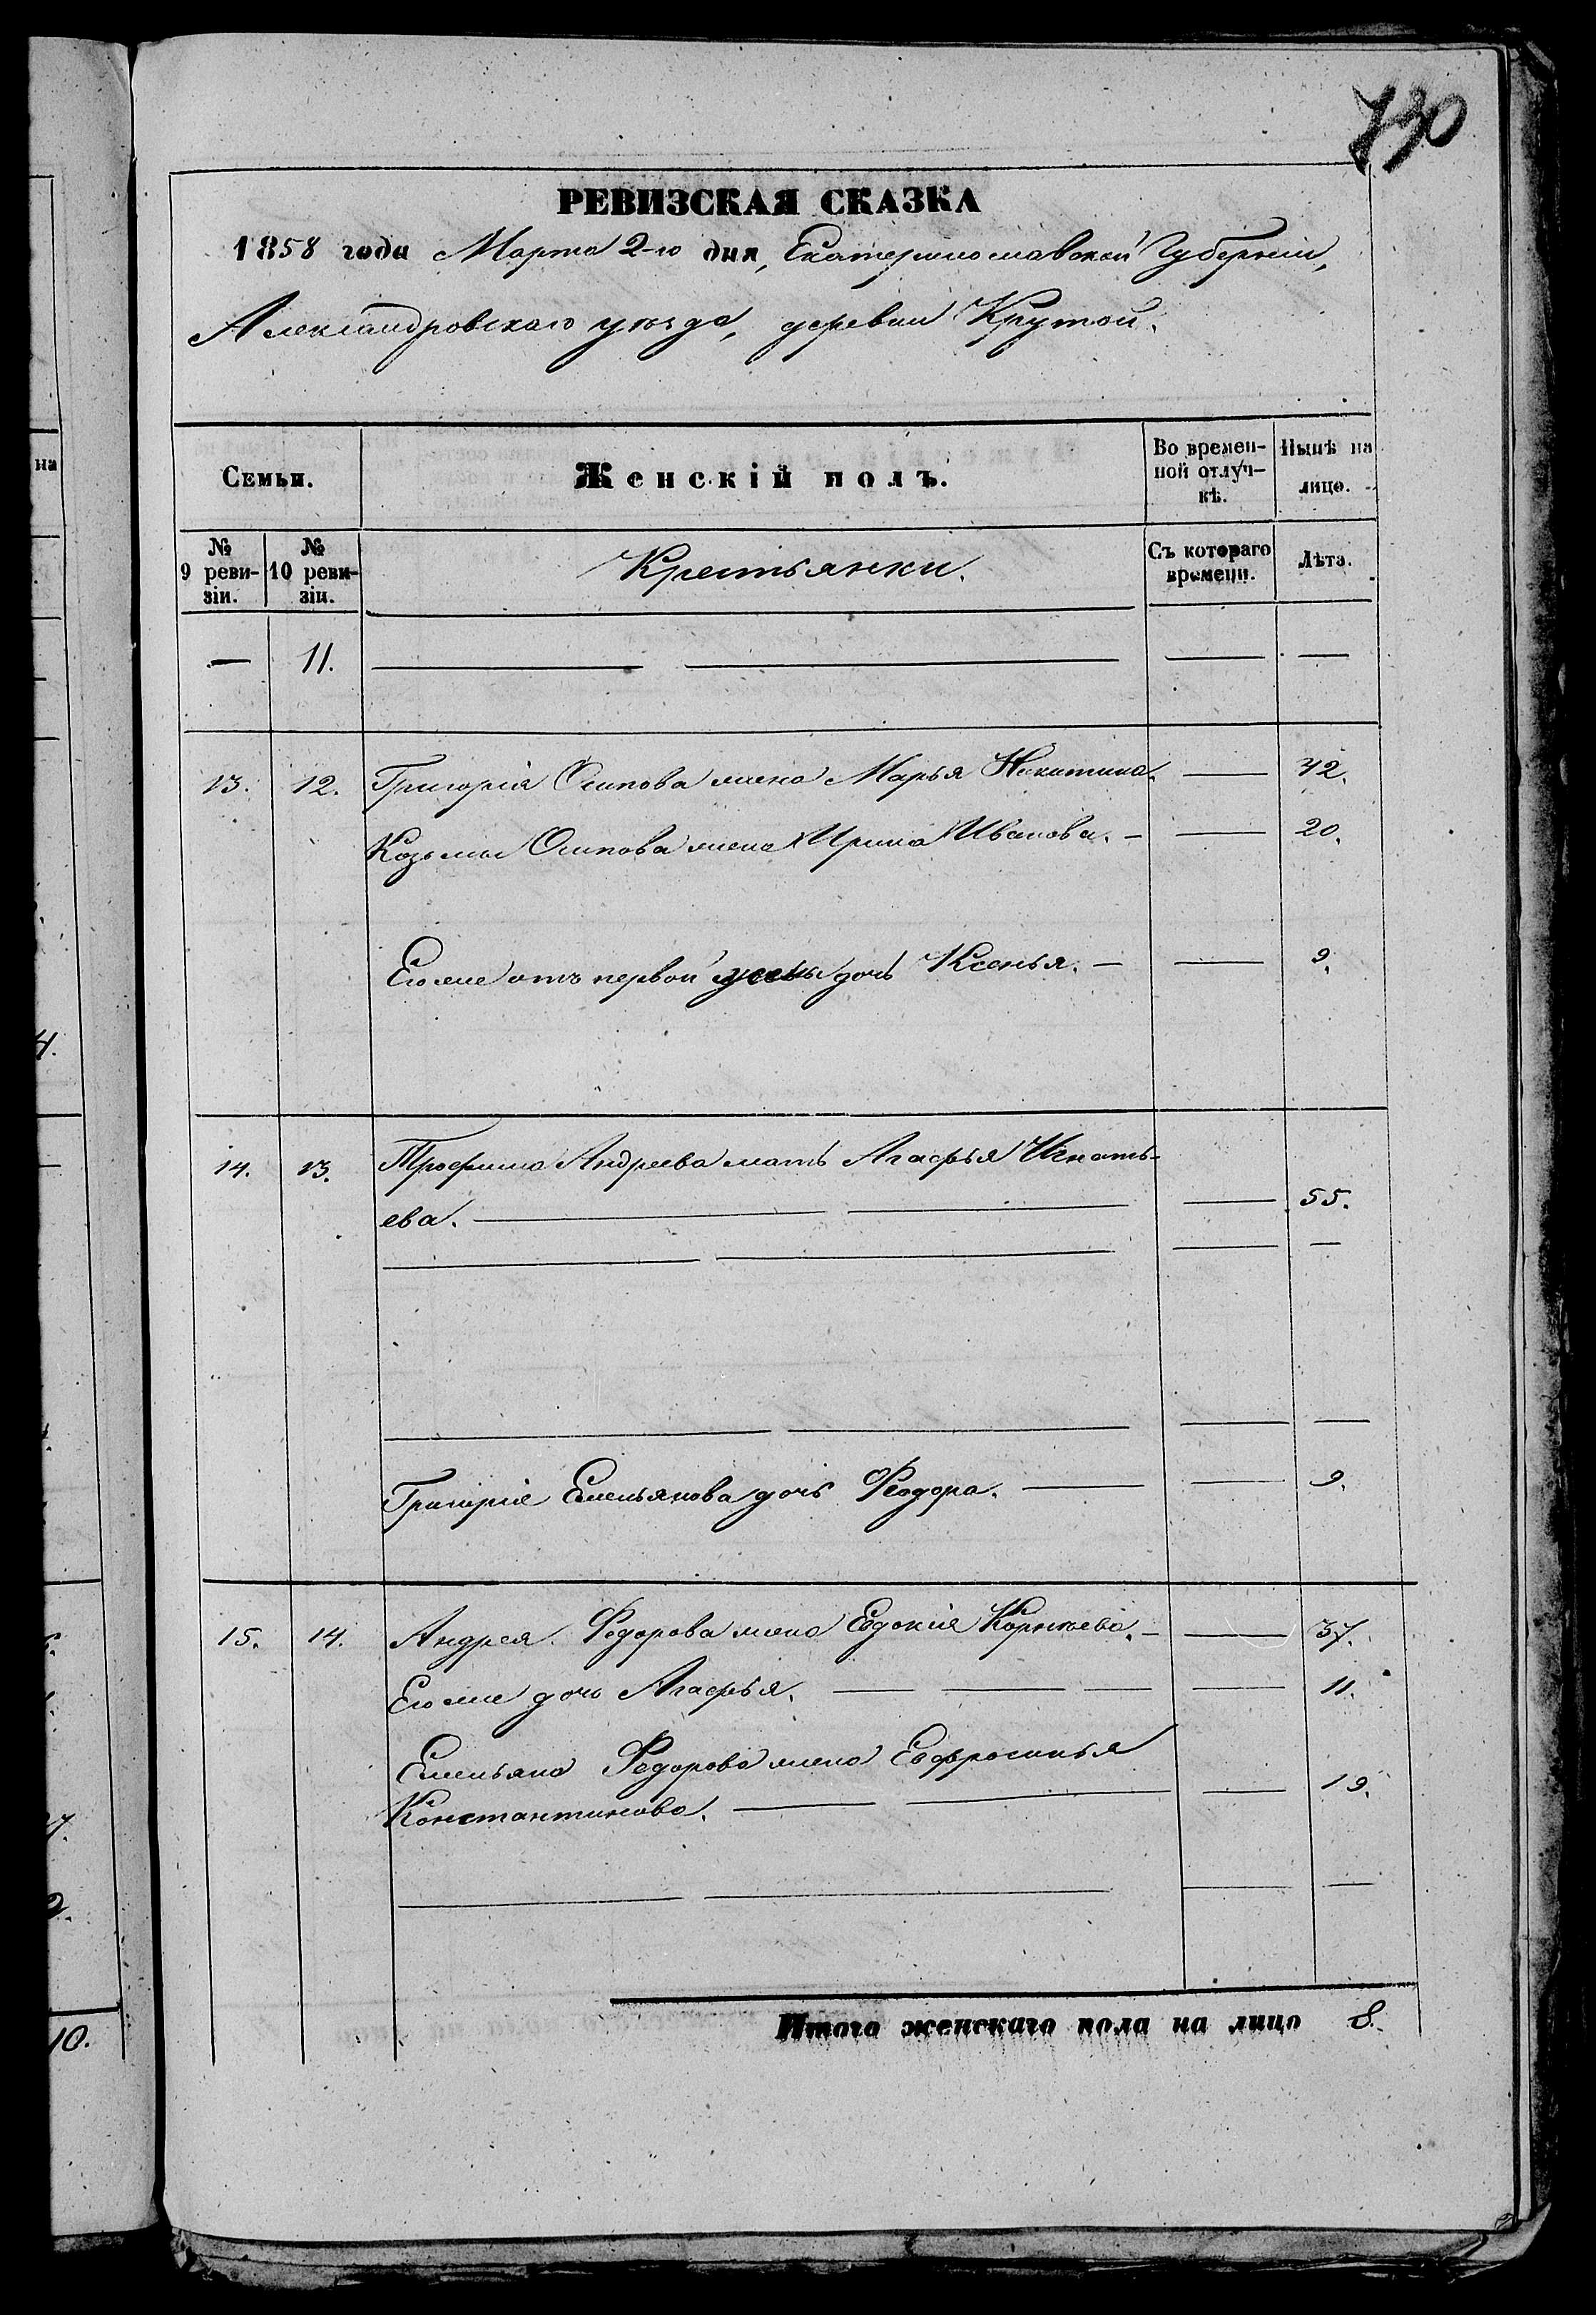 730
РЕВИЗСКАЯ СКАЗКА
1858 года Марта 2-го дня, Екатеринославской Губерніи,
Александровскаго уѣзда, деревни Крутой.
Семьи. Женскій полъ. Во времен- Нынѣ на
ной отлуч- лицо.
кѣ.
№ № Крестьянки. Съ котораго Лѣта.
9 реви- 10 реви- времени.
зіи. зіи.
— 11. — — — —
13. 12. Григорія Осипова жена Марья Никитина. — 42.
Козьмы Осипова жена Ирина Иванова. — — 20.
Егоже отъ первой жены дочь Ксенья. — — 9.
14. 13. Трофима Андреева мать Агафья Игнать-
ева. — — — 55.
— — — —
— — — —
Григорія Емельянова дочь Феодора. — — 9.
15. 14. Андрея Федорова жена Евдокія Корнѣева. — — 37.
Егоже дочь Агафья. — — — — 11.
Емельяна Федорова жена Евфросинья
Константинова. — — — 19.
— — — —
Итого женскаго пола на лицо 8.
на
4.
7.
2.
10.